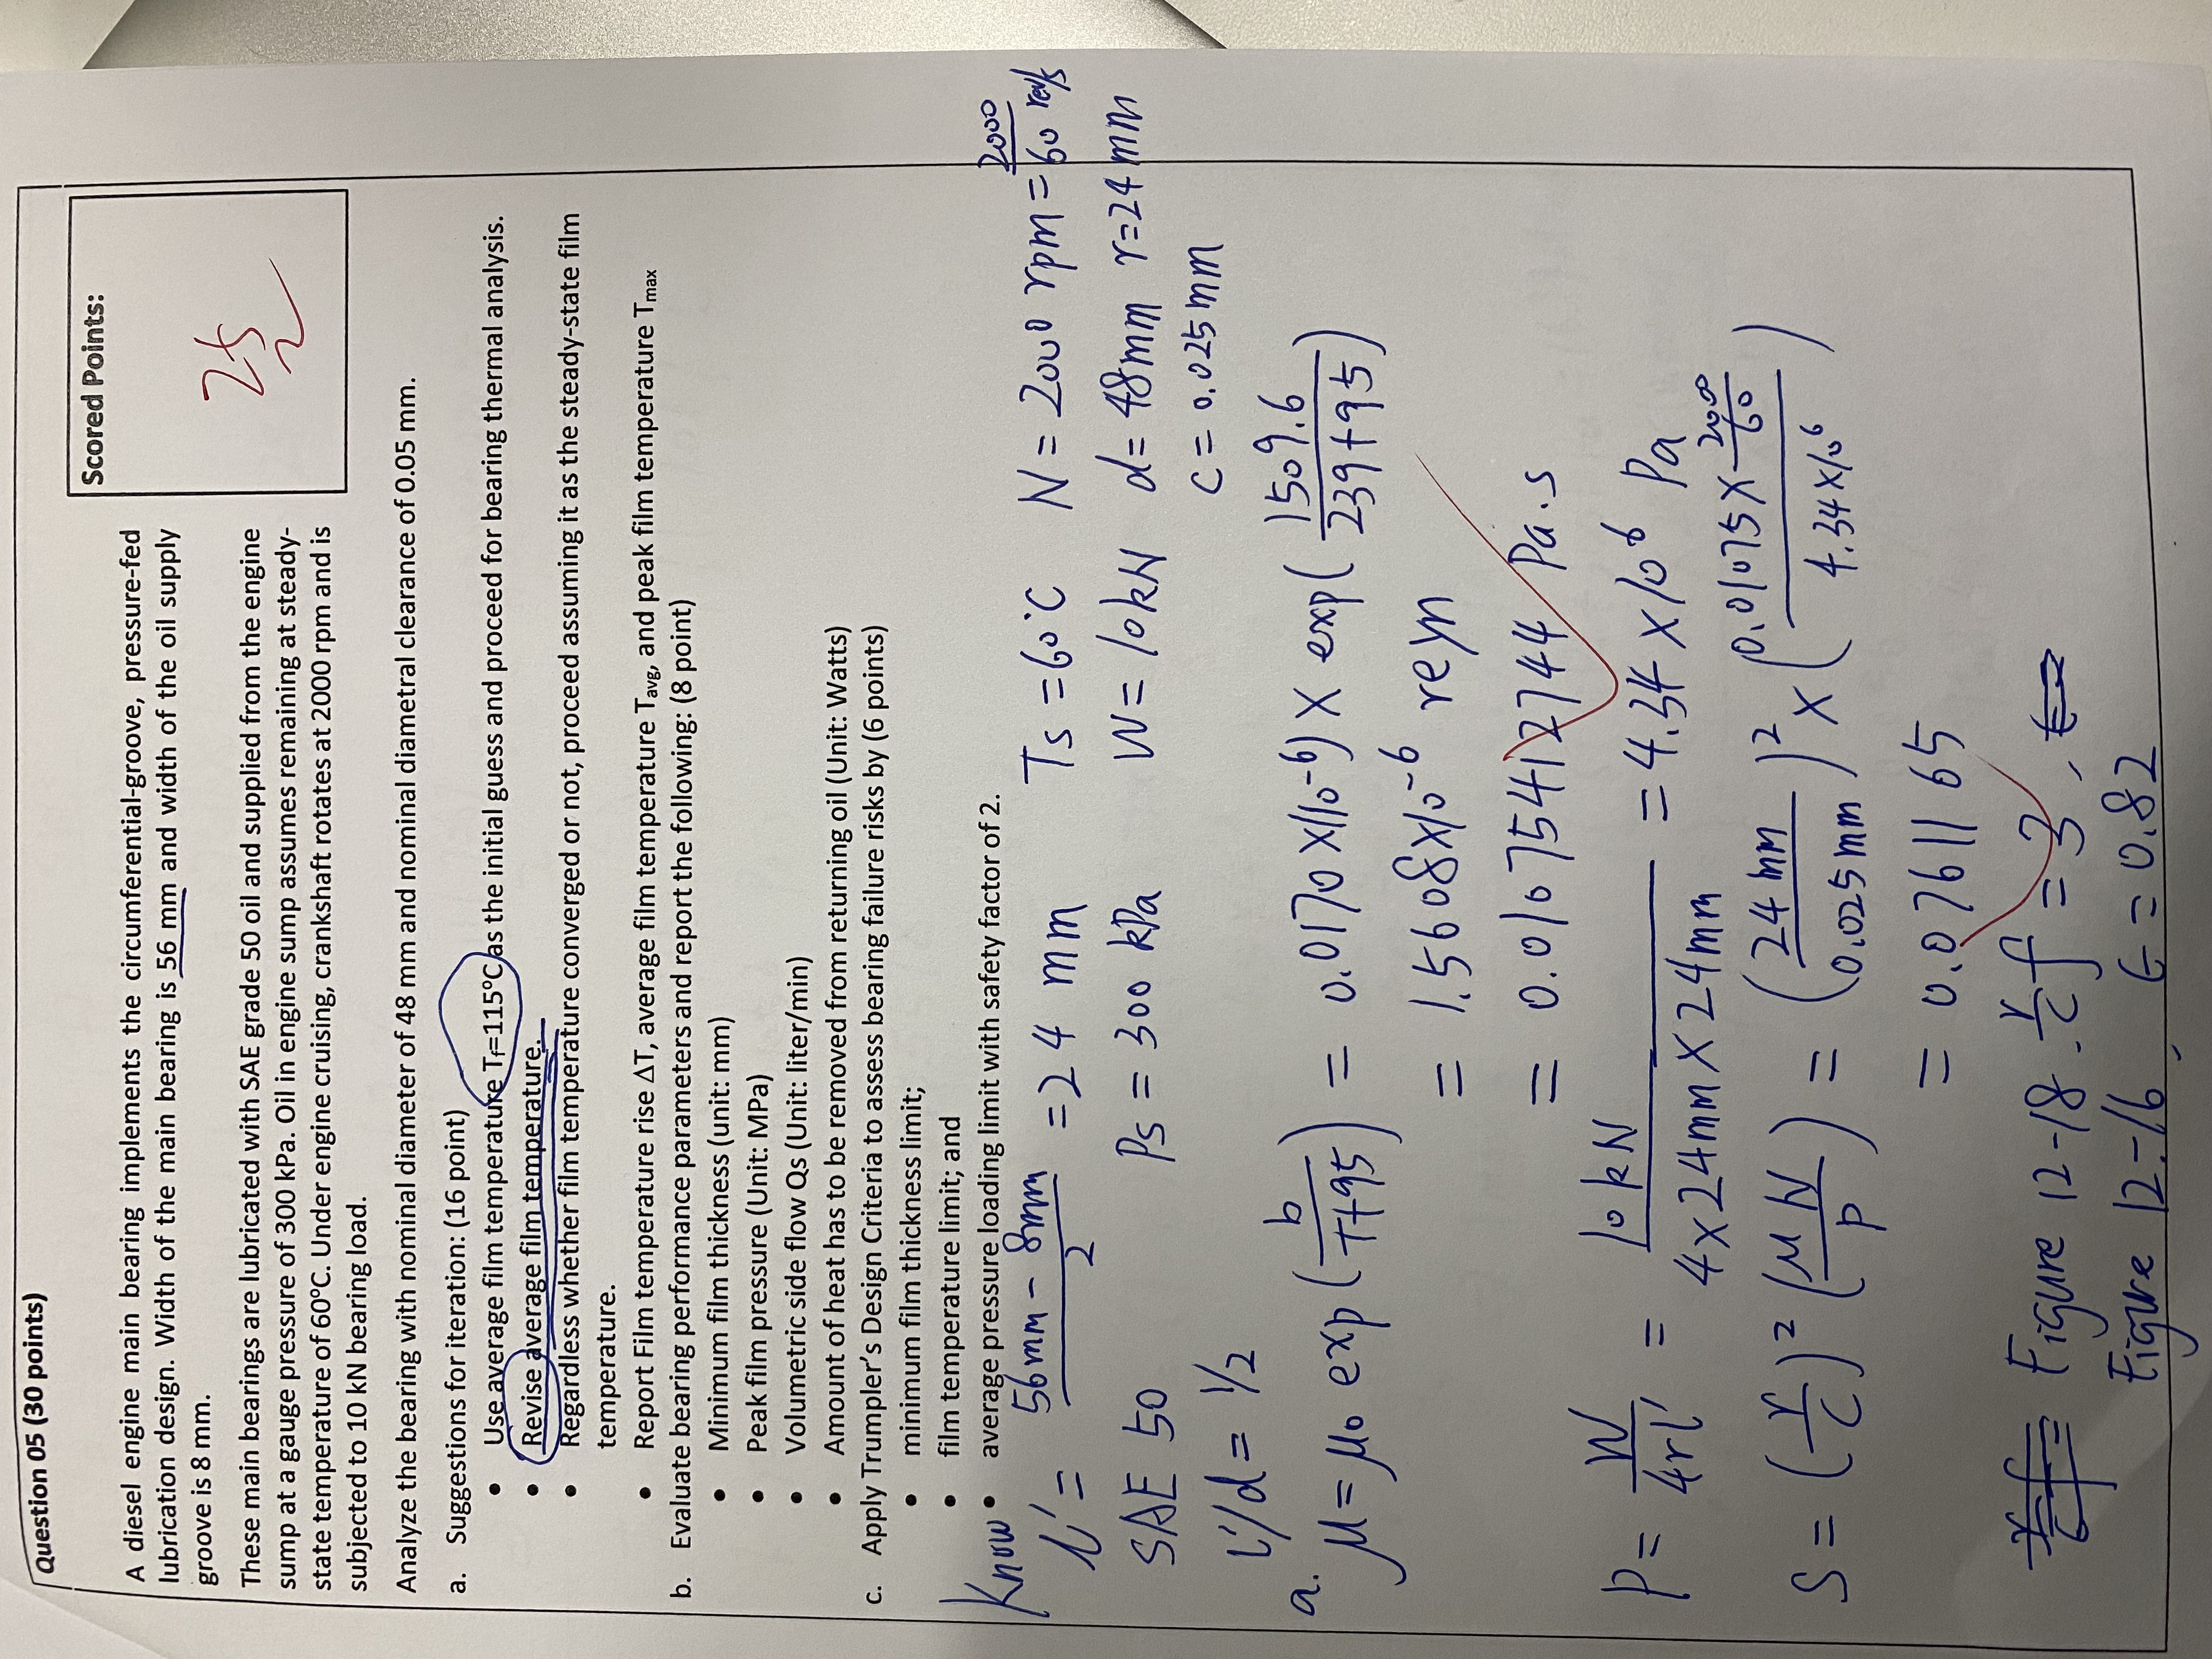 Question 05 (30 points)
Scored Points:
25
A diesel engine main bearing implements the circumferential-groove, pressure-fed
lubrication design. Width of the main bearing is 56 mm and width of the oil supply
groove is 8 mm.
These main bearings are lubricated with SAE grade 50 oil and supplied from the engine
sump at a gauge pressure of 300 kPa. Oil in engine sump assumes remaining at steady-
state temperature of 60°C. Under engine cruising, crankshaft rotates at 2000 rpm and is
subjected to 10 kN bearing load.
Analyze the bearing with nominal diameter of 48 mm and nominal diametral clearance of 0.05 mm.
a. Suggestions for iteration: (16 point)
• Use average film temperature Tf=115°C as the initial guess and proceed for bearing thermal analysis.
• Revise average film temperature.
• Regardless whether film temperature converged or not, proceed assuming it as the steady-state film
temperature.
• Report Film temperature rise ΔT, average film temperature Tavg, and peak film temperature Tmax
b. Evaluate bearing performance parameters and report the following: (8 point)
• Minimum film thickness (unit: mm)
• Peak film pressure (Unit: MPa)
• Volumetric side flow Qs (Unit: liter/min)
• Amount of heat has to be removed from returning oil (Unit: Watts)
c. Apply Trumpler's Design Criteria to assess bearing failure risks by (6 points)
• minimum film thickness limit;
• film temperature limit; and
• average pressure loading limit with safety factor of 2.
Know
l' = (56mm - 8mm)/2 = 24 mm Ts = 60°C N = 2000 rpm = 2000/60 rev/s
SAE 50 Ps = 300 kPa W = 10kN d = 48mm r=24mm
c = 0.025mm
l'/d = 1/2
a.
μ = μ0 exp(b/(T+95)) = 0.0170 X(10^-6) X exp(1509.6/(239+95))
= 1.5608X10^-6 reyn
= 0.01075412744 Pa.s
P = W/(4rl') = 10kN/(4x24mmX24mm) = 4.34 x10^6 Pa
S = (r/c)^2 (μN/P) = (24mm/0.025mm)^2 x (0.01075X2000/60 / 4.34X10^6)
= 0.0761165
Figure 12-18. r/c f = 3,
Figure 12-16, ϵ = 0.82